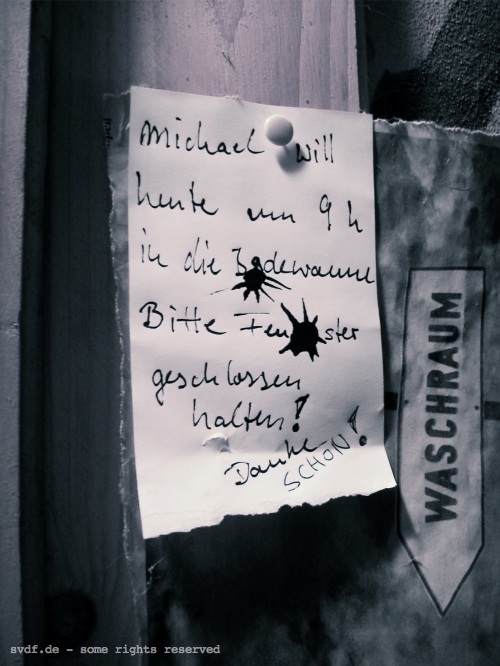 Michael will
heute um 9 h
in die Badewanne
Bitte Fenster
geschlossen
halten!
Danke
SCHÖN!
WASCHRAUM
svdf.de - some rights reserved